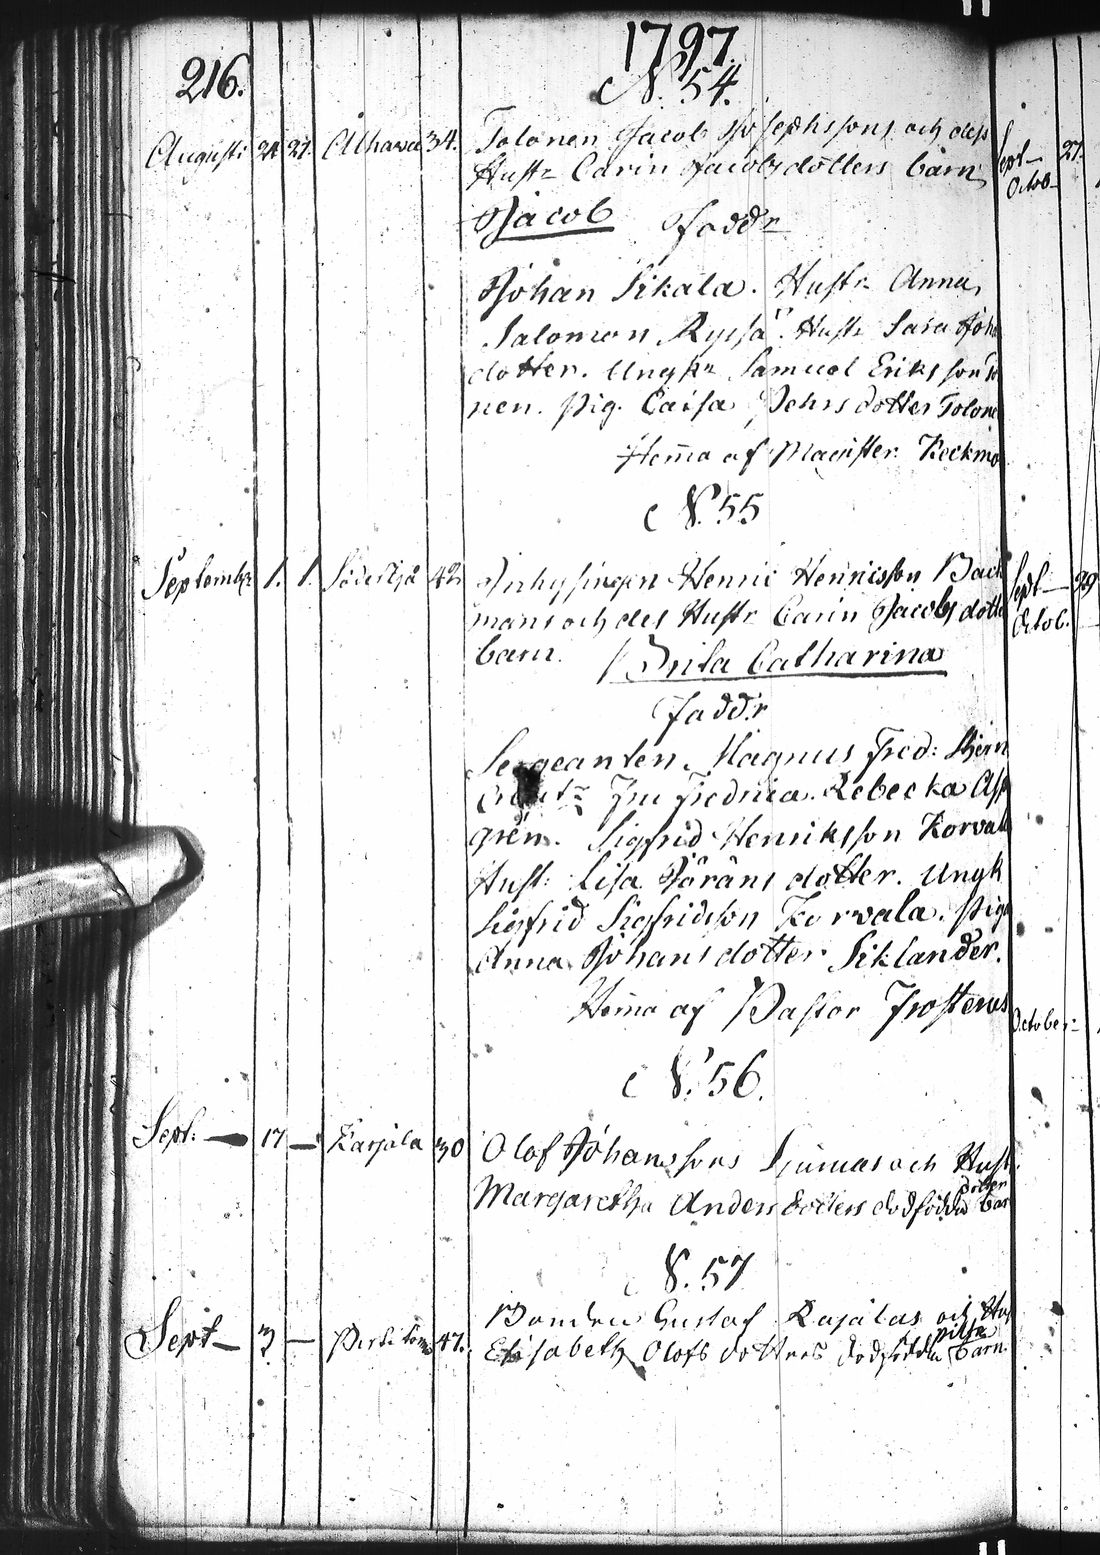 216.
1797.
N. 54.
Augusti 24 27. Alhava 34. Tolonen Jacob Josephssons och dess
Hustr Carin Jacobsdotters barn
Jacob Faddr
Johan Sikala. Hustr Anna,
Salomon Ryssä. Hustr Sara Joha
dotter. Ungkr Samuel Eriksson To
nen. Pig. Caisa Pehrsdotter Tolone
Hema af Magister Keckmo
N. 55
September 1. 1. Söderbyå 42 Inhysingen Henric Henricsson Back
mans och des Hustr Carin Jacobs dotte
barn. Brita Catharina
Faddr
Sergeanten Magnus Fred: Bjern
Fru Fredrica Rebecka Asp
grén. Sigfrid Henriksson Korvala
Hust: Lisa Jöransdotter. Ungk
Sigfrid Sigfridsson Korvala. Pig
Anna Johansdotter Siklander.
Hema af Pastor Frosterus
N. 56.
Sept. — 17 — Karjala 30 Olof Johanssons och Hust
Margaretha Andersdotters dödfödda bar
dotter
N. 57
Sept — 3 — 47. Bonden Gustaf Rajalas och Hus
Elisabeth Olofs dotters dödfödda barn.
Sept — 27.
Octob —
Sept — 29
Octob.
October: